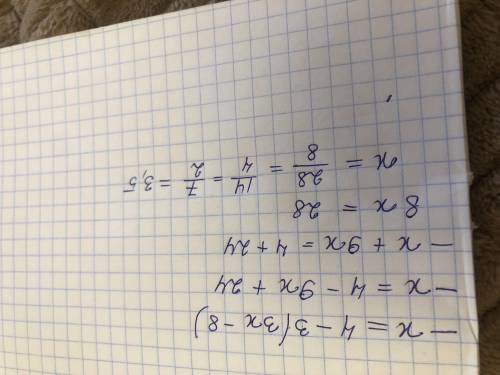 -x = 4 - 3(3x - 8)
-x = 4 - 9x + 24
-x + 9x = 4 + 24
8x = 28
x = 28/8 = 14/4 = 7/2 = 3,5